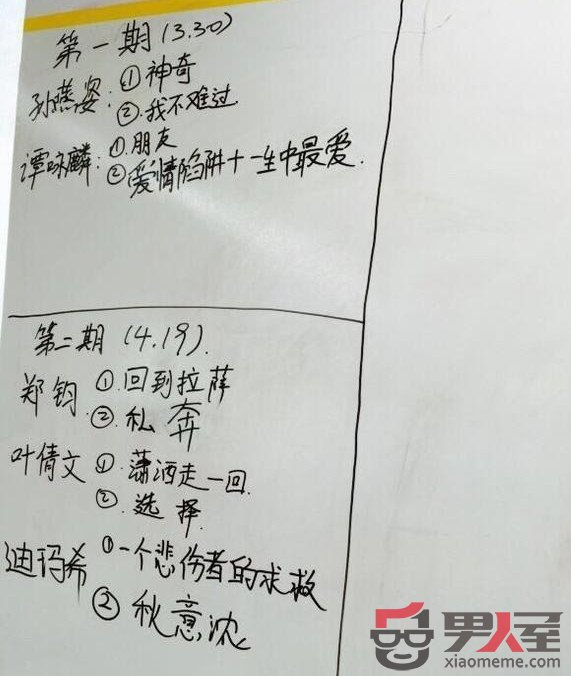 第一期(3.30)
孙燕姿:①神奇
②我不难过
谭咏麟:①朋友
②爱情陷阱+一生中最爱.
第二期(4.19).
郑钧 ①回到拉萨
②私奔
叶倩文 ①潇洒走一回.
②.选择.
迪玛希 ①一个悲伤者的求救
②秋意浓
男人屋
xiaomeme.com